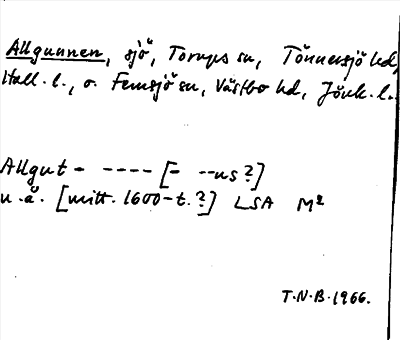 Allgunnen, sjö, Torups sn, Tönnersjö hd,
Hall. l., o. Femsjö sn, Västbo hd, Jönk. l.
Allgut - ---- [- --us?]
u.å. [mitt. 1600-t.?] LSA M²
T.N.B. 1966.